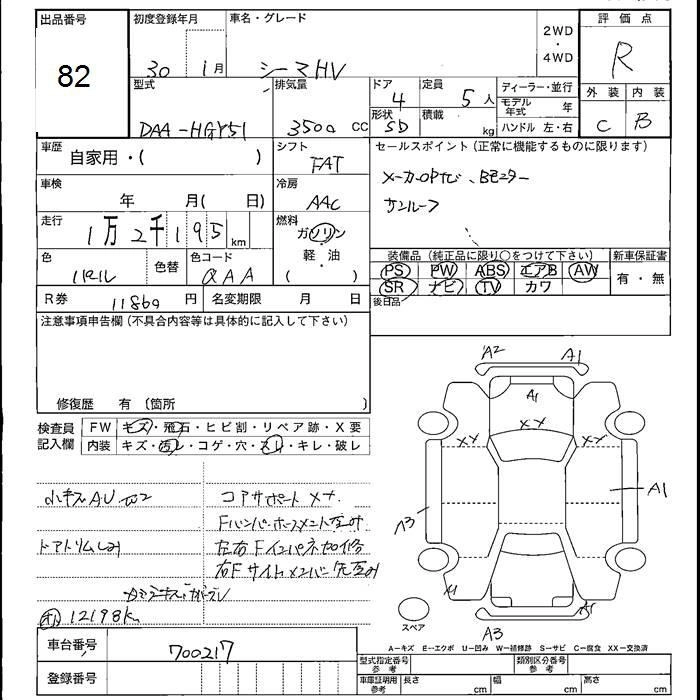 出品番号
82
初度登録年月
30 1月
車名・グレード
シーマHV
2WD
・
4WD
評価点
R
型式
DAA-HGY51
排気量
3500 cc
ドア
4
形状
SD
定員
5人
積載
kg
ディーラー・並行
モデル年式 年
ハンドル 左・右
外装
C
内装
B
車歴
自家用・( )
シフト
FAT
セールスポイント(正常に機能するものに限ります)
メーカOPナビ、Bモニター
サンルーフ
車検
年 月( 日)
冷房
AAC
走行
1万2千195km
燃料
ガソリン
・
軽・油
( )
色
色替
色コード
QAA
装備品(純正品に限り○をつけて下さい)
PS PW ABS エアB AW
SR ナビ TV カワ
新車保証書
有・無
後日品
R券
11860円
名変期限 月 日
注意事項申告欄(不具合内容等は具体的に記入して下さい)
修復歴 有 (箇所 )
検査員記入欄
FW キズ・飛石・ヒビ割・リペア跡・X要
内装 キズ・汚レ・コゲ・穴・スレ・キレ・破レ
小キズAU
コアサポートXX
ドアトリムしみ
左右Fインパネ加修
12198k
A2
A1
A1
XX
XX
XX
A1
A3
A1
A3
スペア
A-キズ E-エクボ U-凹み W-補修跡 S-サビ C-腐食 XX-交換済
車台番号
700217
登録番号
型式指定番号 参考
類別区分番号 参考
車庫証明用 参考
長さ cm
幅 cm
高さ cm